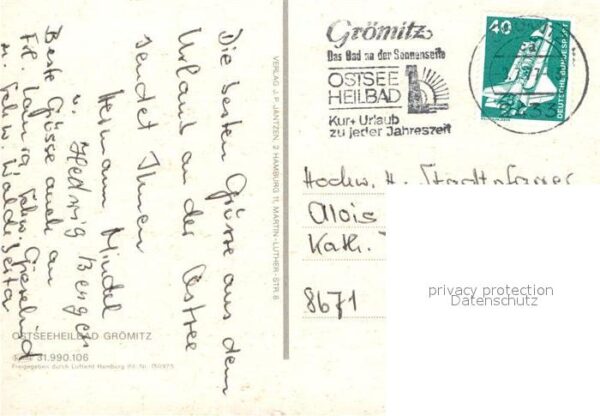 Die besten Grüsse aus dem
Urlaub an der Ostsee
sendet Ihnen
Hermann Mindel
u. Hedwig Bengen
Beste Grüsse auch an
Frl. Laura, Schw. Giselind
u. Schw. Waldeberta
OSTSEEHEILBAD GRÖMITZ
31.990.106
Freigegeben durch Luftamt Hamburg
VERLAG J. P. JANTZEN, 2 HAMBURG 11, MARTIN-LUTHER-STR. 6
Grömitz
Das Bad an der Sonnenseite
OSTSEE
HEILBAD
Kur + Urlaub
zu jeder Jahreszeit
40
DEUTSCHE BUNDESPOST
Hochw. H. Stadtpfarrer
Alois
Kath.
8671
privacy protection
Datenschutz